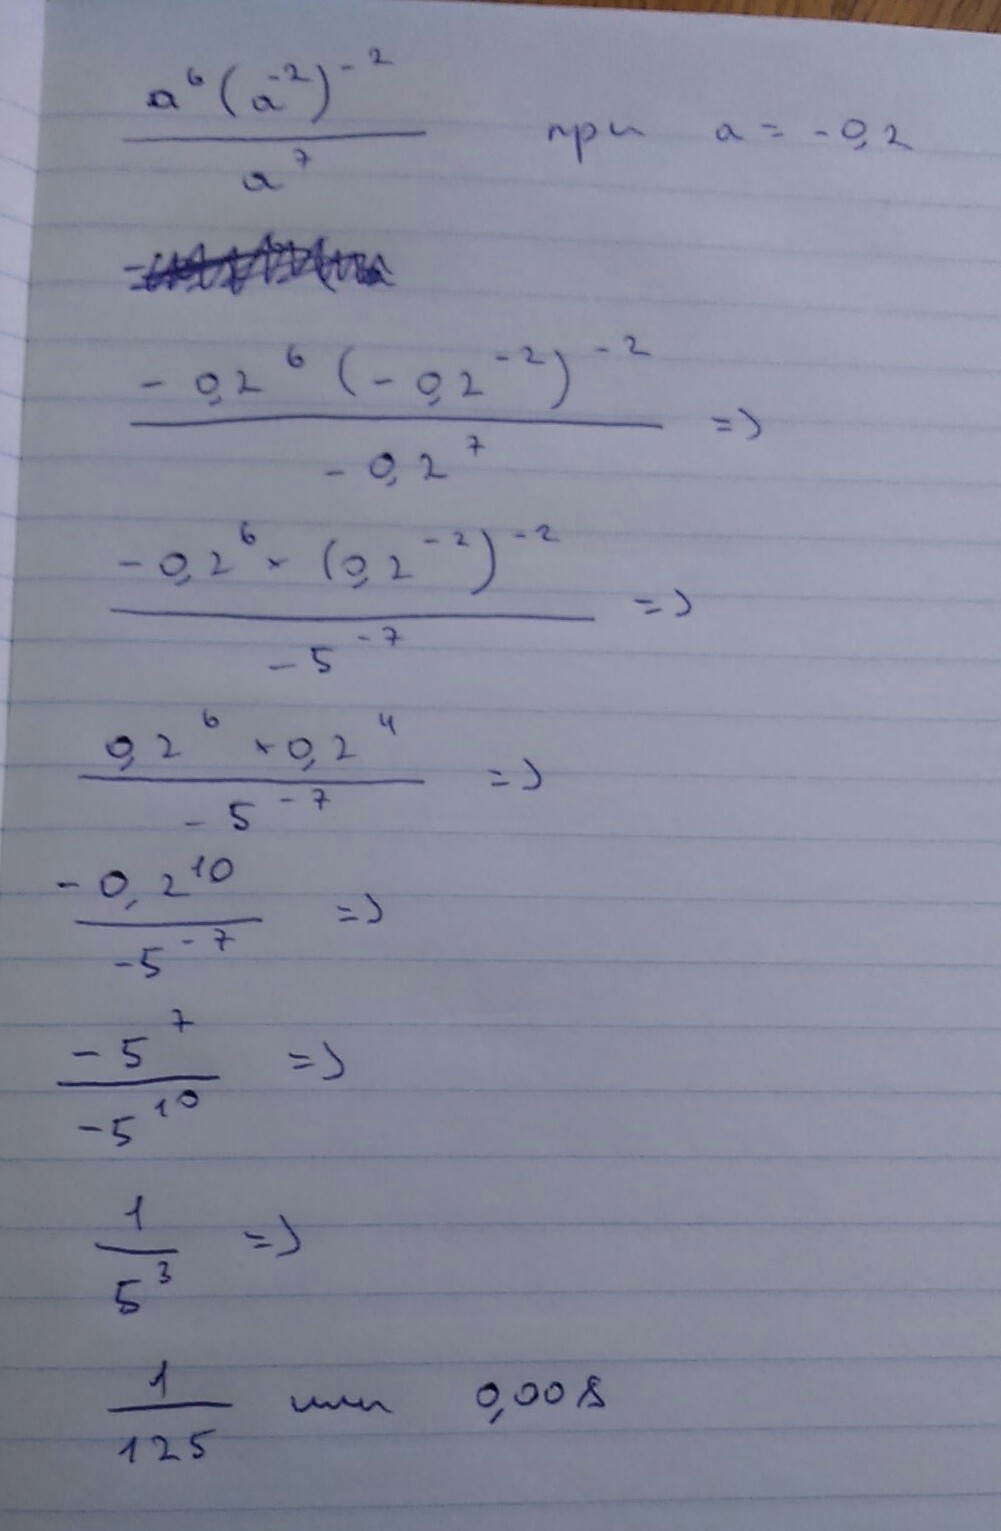 a⁶(a⁻²)⁻² / a⁷ при a = -0,2
-0,2⁶ (-0,2⁻²)⁻² / -0,2⁷ =>
-0,2⁶ × (0,2⁻²)⁻² / -5⁻⁷ =>
0,2⁶ × 0,2⁴ / -5⁻⁷ =>
-0,2¹⁰ / -5⁻⁷ =>
-5⁷ / -5¹⁰ =>
1 / 5³ =>
1 / 125 или 0,008